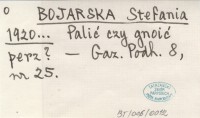 0 BOJARSKA Stefania
1920... Palić czy gnoić
perz? — Gaz. Podh. 8,
nr 25.